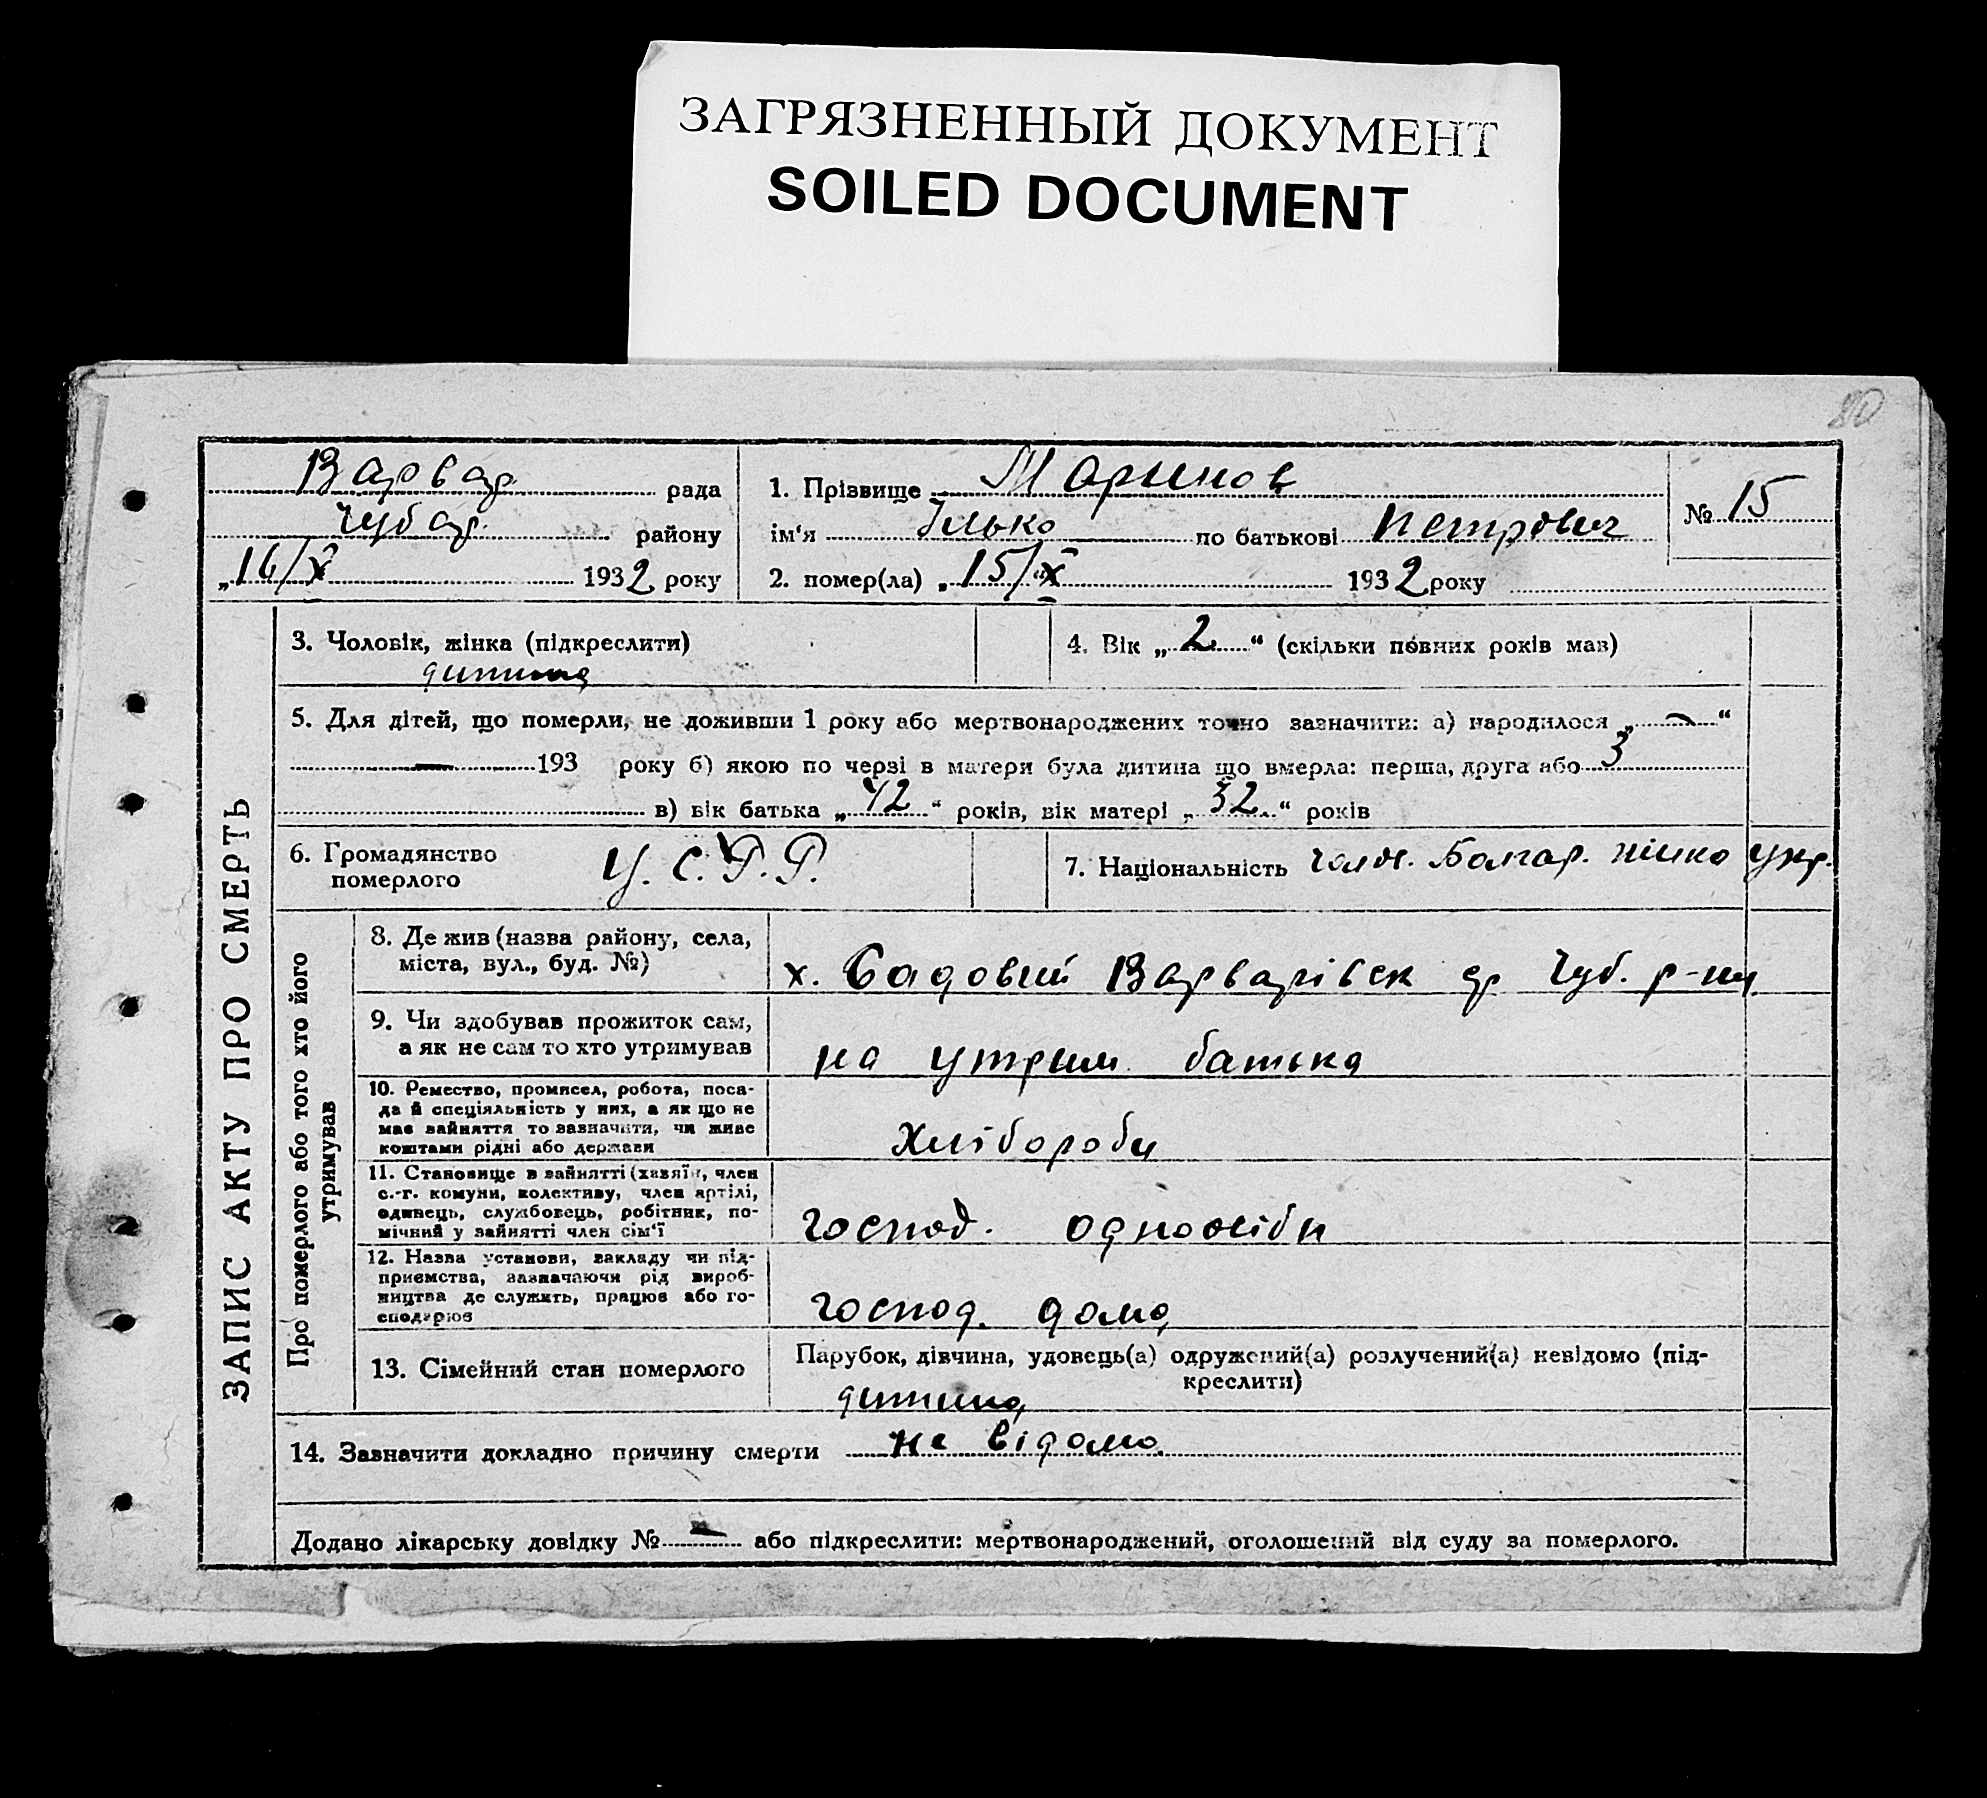 ЗАГРЯЗНЕННЫЙ ДОКУМЕНТ
SOILED DOCUMENT
80
Варвар. рада
Чубар. району
„16/X 1932 року
1. Прізвище Маринов
ім‘я Ілько по батькові Петрович
2. помер(ла) „15/X 1932 року
№ 15
ЗАПИС АКТУ ПРО СМЕРТЬ
3. Чоловік, жінка (підкреслити)
дитина
4. Вік „2“ (скільки повних років мав)
5. Для дітей, що померли, не доживши 1 року або мертвонароджених точно зазначити: а) народилося „—“
— 193 року б) якою по черзі в матери була дитина що вмерла: перша, друга або 3
в) вік батька „42“ років, вік матері „32“ років
6. Громадянство
померлого
У.С.Р.Р.
7. Національність чолов. Болгар. жінка укр.
Про померлого або того хто його
утримував
8. Де жив (назва району, села,
міста, вул., буд. №)
х. Садовий Варварівск ср Чуб. р-ну
9. Чи здобував прожиток сам,
а як не сам то хто утримував
на утрим. батька
10. Ремество, промисел, робота, поса-
да й спеціяльність у них, а як що не
має зайняття то зазначити, чи живе
коштами рідні або держави
Хлібороби
11. Становище в зайнятті (хазяїн, член
с.-г. комуни, колективу, член артілі,
одинець, службовець, робітник, по-
мічний у зайнятті член сім‘ї
господ. одноосібн
12. Назва установи, закладу чи під-
приємства, зазначаючи рід вироб-
ництва де служить, працює або го-
сподарює
господ. дома
13. Сімейний стан померлого
Парубок, дівчина, удовець(а) одружений(а) розлучений(а) невідомо (під-
креслити)
дитина
14. Зазначити докладно причину смерти не відомо.
Додано лікарську довідку № — або підкреслити: мертвонароджений, оголошений від суду за померлого.